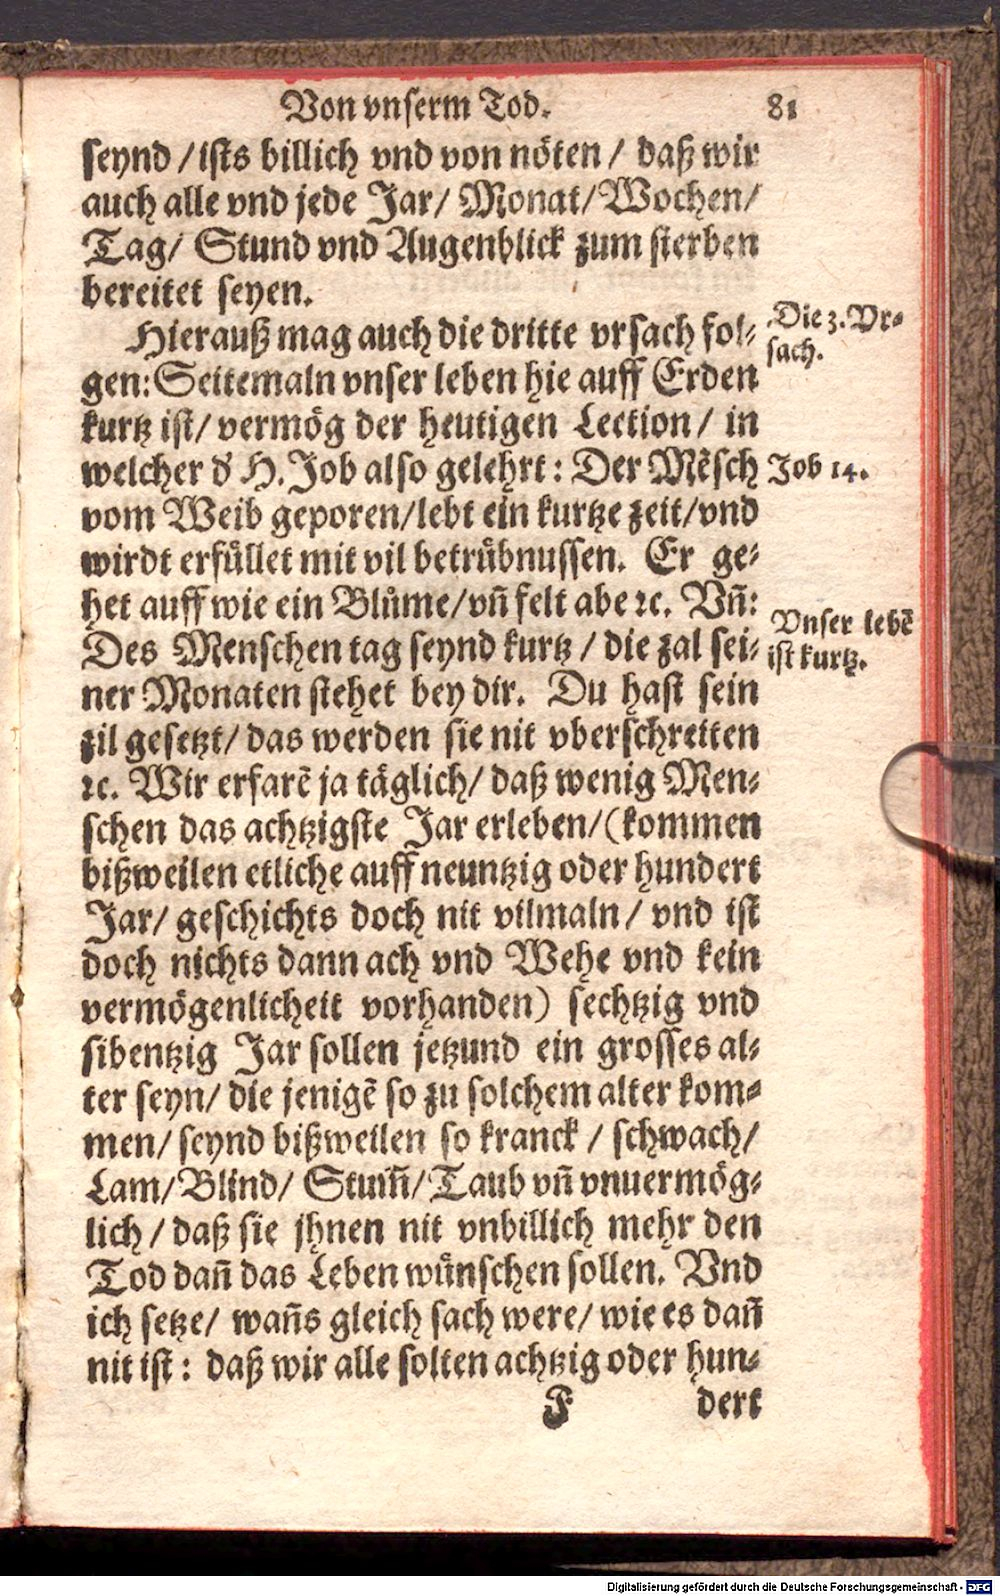 Von vnserm Tod. 81
seynd / ists billich vnd von nöten / daß wir
auch alle vnd jede Jar / Monat / Wochen /
Tag / Stund vnd Augenblick zum sterben
bereitet seyen.
Hierauß mag auch die dritte vrsach fol-
Die 3. Vr-
sach.
gen: Seitemaln vnser leben hie auff Erden
kurtz ist / vermög der heutigen Lection / in
welcher d' H. Job also gelehrt: Der Mẽsch
Job 14.
vom Weib geporen / lebt ein kurtze zeit / vnd
wirdt erfüllet mit vil betrübnussen. Er ge-
het auff wie ein Blůme / vñ felt abe ꝛc. Vñ:
Vnser lebẽ
ist kurtz.
Des Menschen tag seynd kurtz / die zal sei-
ner Monaten stehet bey dir. Du hast sein
zil gesetzt / das werden sie nit vberschreiten
ꝛc. Wir erfarẽ ja täglich / daß wenig Men-
schen das achtzigste Jar erleben / (kommen
bißweilen etliche auff neuntzig oder hundert
Jar / geschichts doch nit vilmaln / vnd ist
doch nichts dann ach vnd Wehe vnd kein
vermögenlicheit vorhanden) sechtzig vnd
sibentzig Jar sollen jetzund ein grosses al-
ter seyn / die jenigẽ so zu solchem alter kom-
men / seynd bißweilen so kranck / schwach /
Lam / Blind / Stum̃ / Taub vñ vnuermög-
lich / daß sie jhnen nit vnbillich mehr den
Tod dañ das Leben wünschen sollen. Vnd
ich setze / wañs gleich sach were / wie es dañ
nit ist: daß wir alle solten achtzig oder hun-
F dert
Digitalisierung gefördert durch die Deutsche Forschungsgemeinschaft - DFG